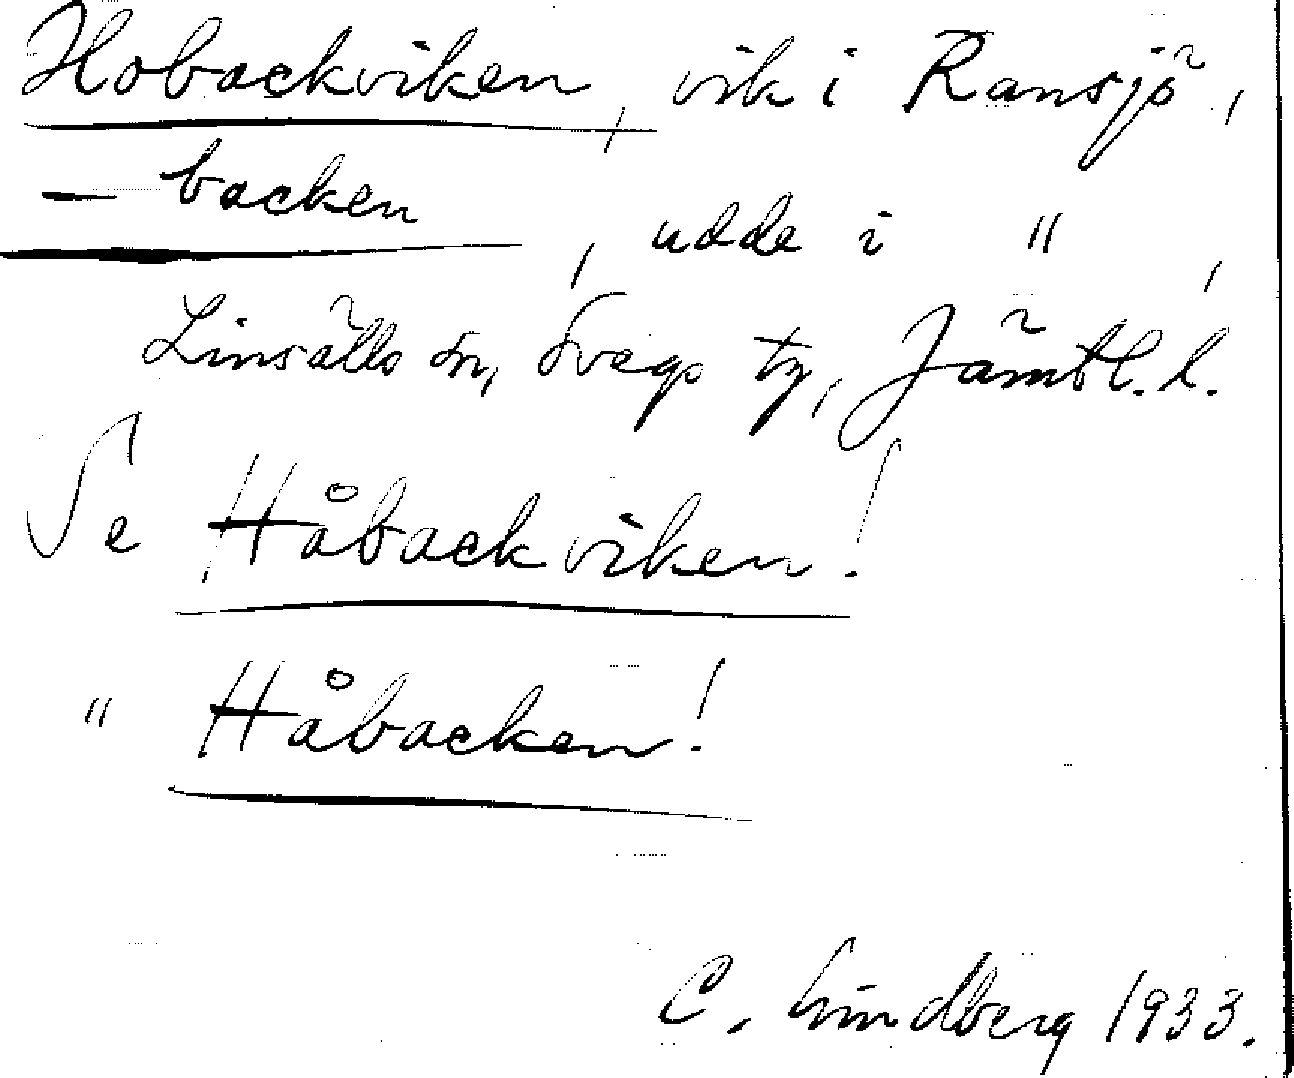 Hobackviken, vik i Ransjö,
— backen, udde i ",
Linsälls sn, Svegs tg, Jämtl. l.
Se Håbackviken!
" Håbacken!
C. Lindberg 1933.